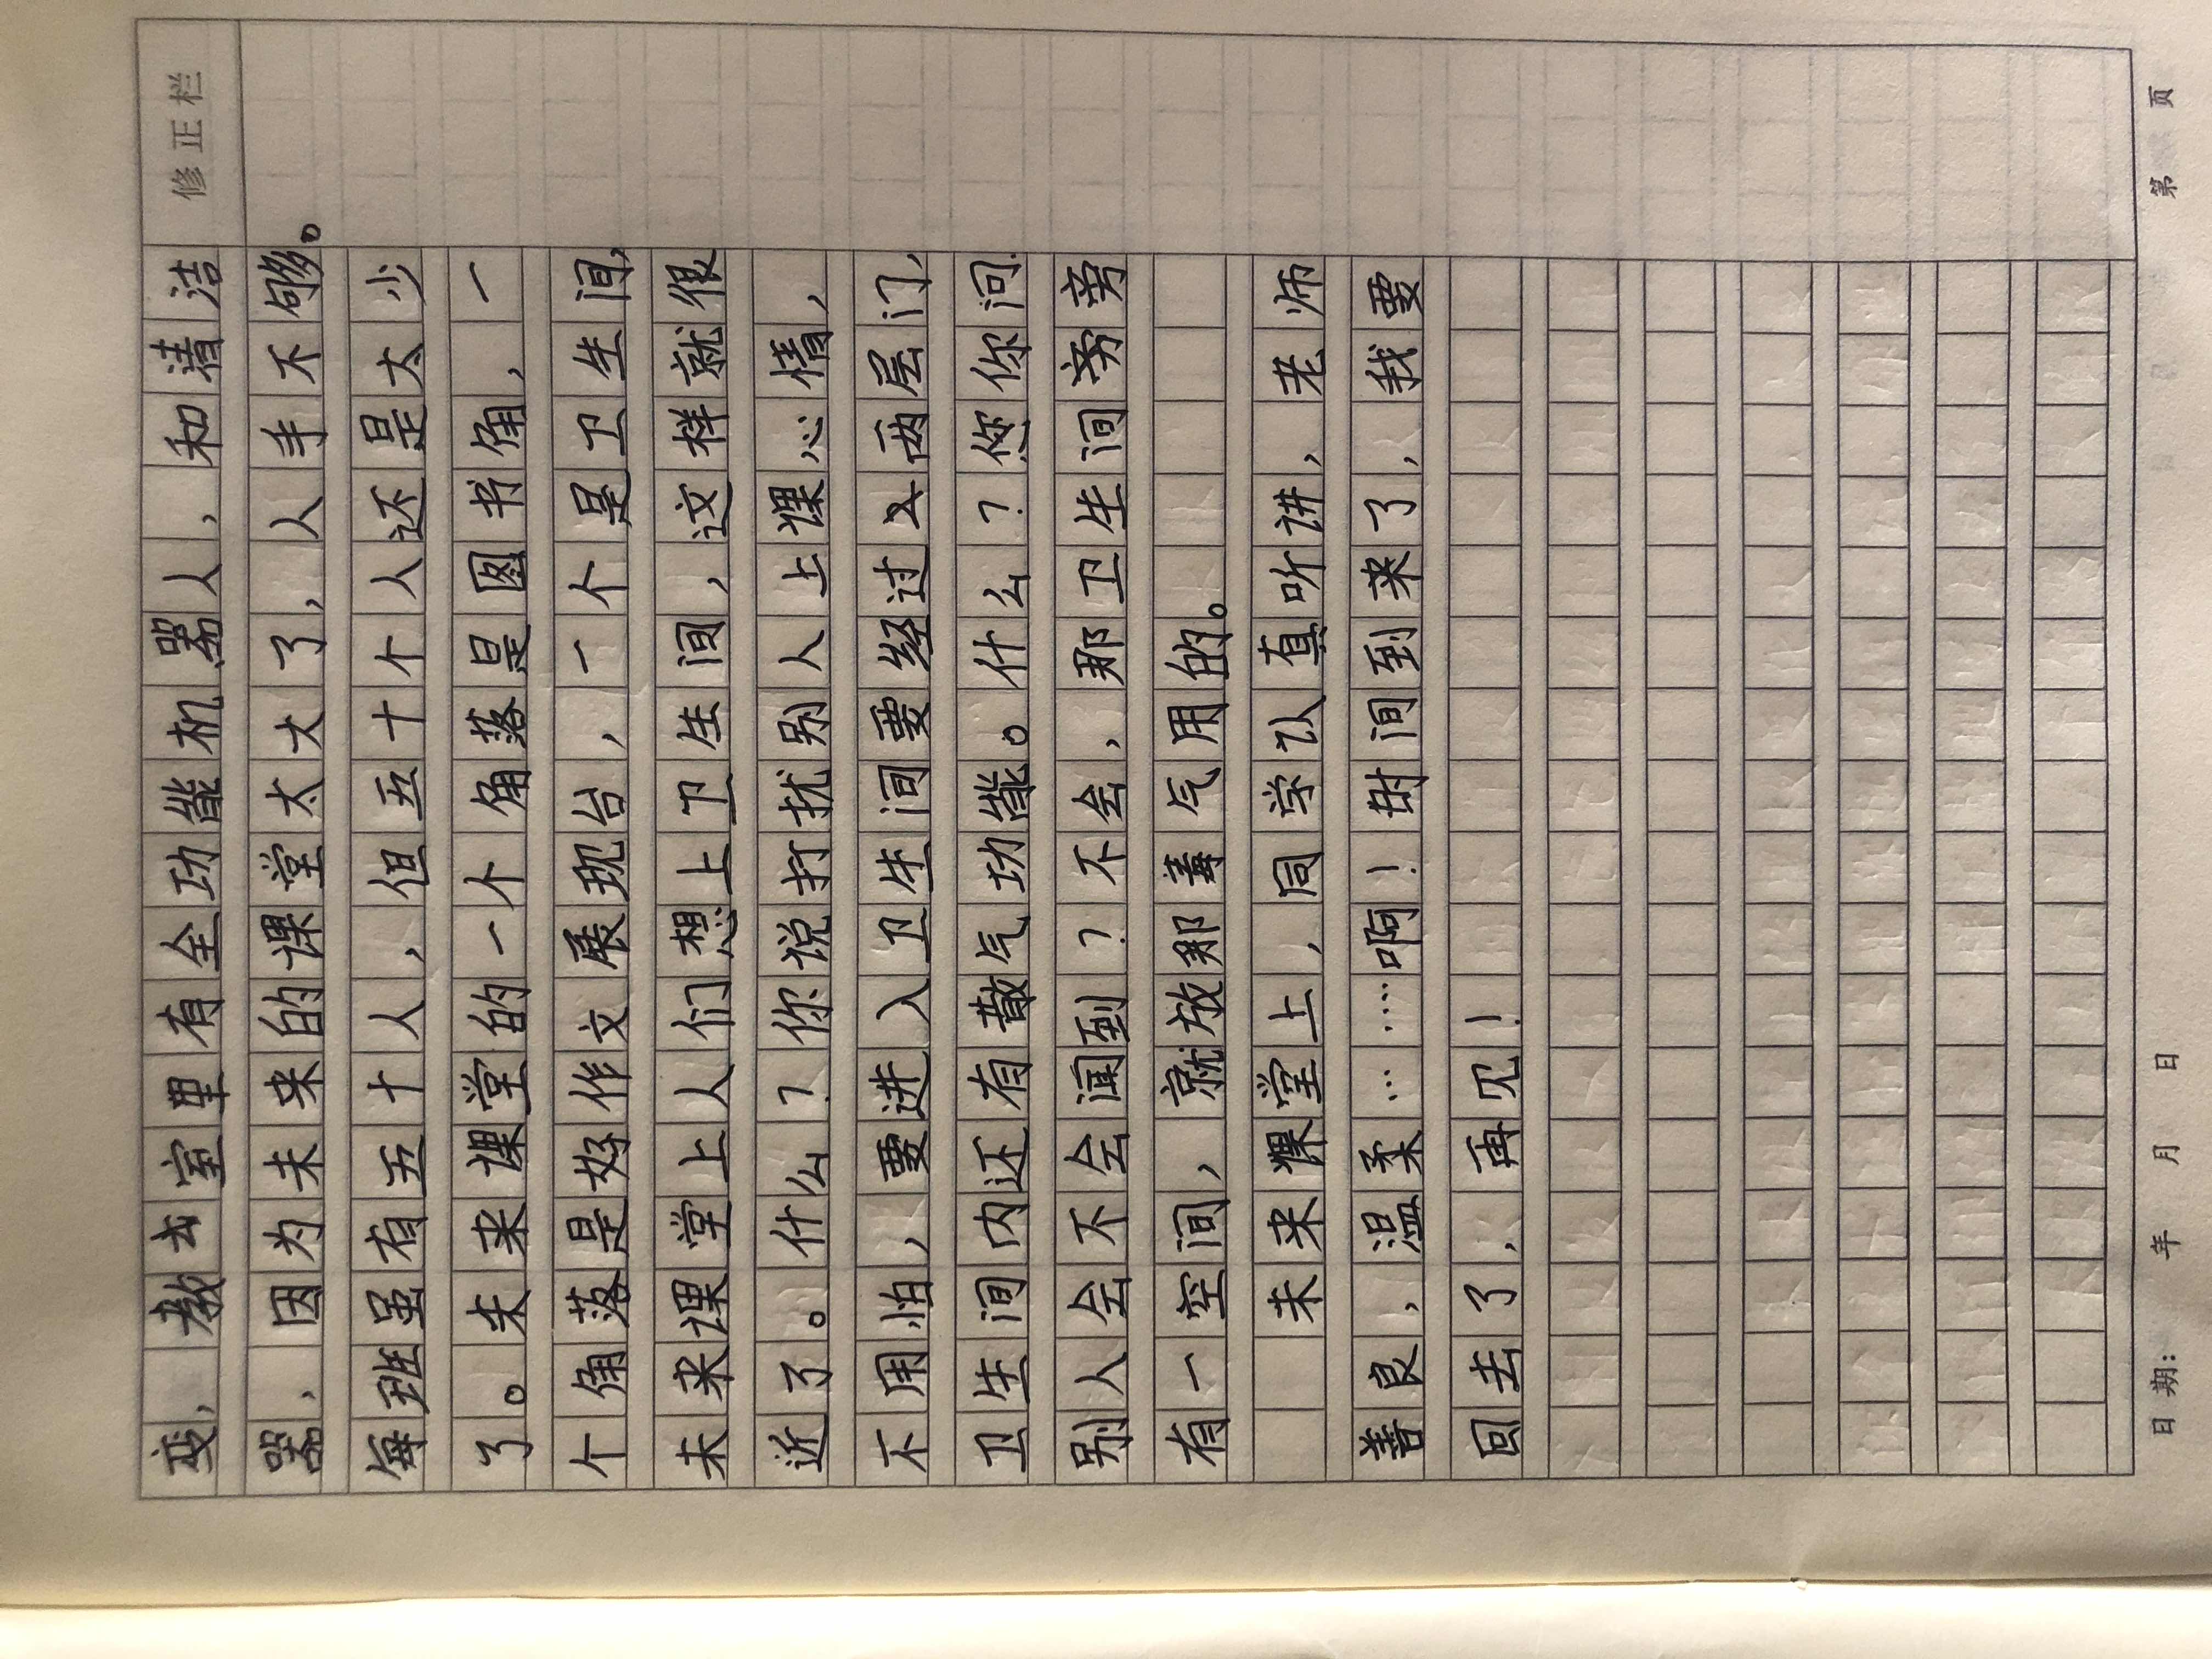 修正栏
变，教去室里有全功能机器人，和清洁
器，因为未来的课堂太大了，人手不够。
每班虽有五十人，但五十个人还是太少
了。未来课堂的一个角落是图书角，一
个角落是好作文展现台，一个是卫生间，
未来课堂上人们想上卫生间，这样就很
近了。什么？你说打扰别人上课心情，
不用怕，要进入卫生间要经过两层门，
卫生间内还有散气功能。什么？您你问
别人会不会闻到？不会，那卫生间旁旁
有一空间，就放那毒气用的。
未来课堂上，同学认真听讲，老师
善良，温柔……啊！时间到来了，我要
回去了，再见！
日期： 年 月 日 第 页